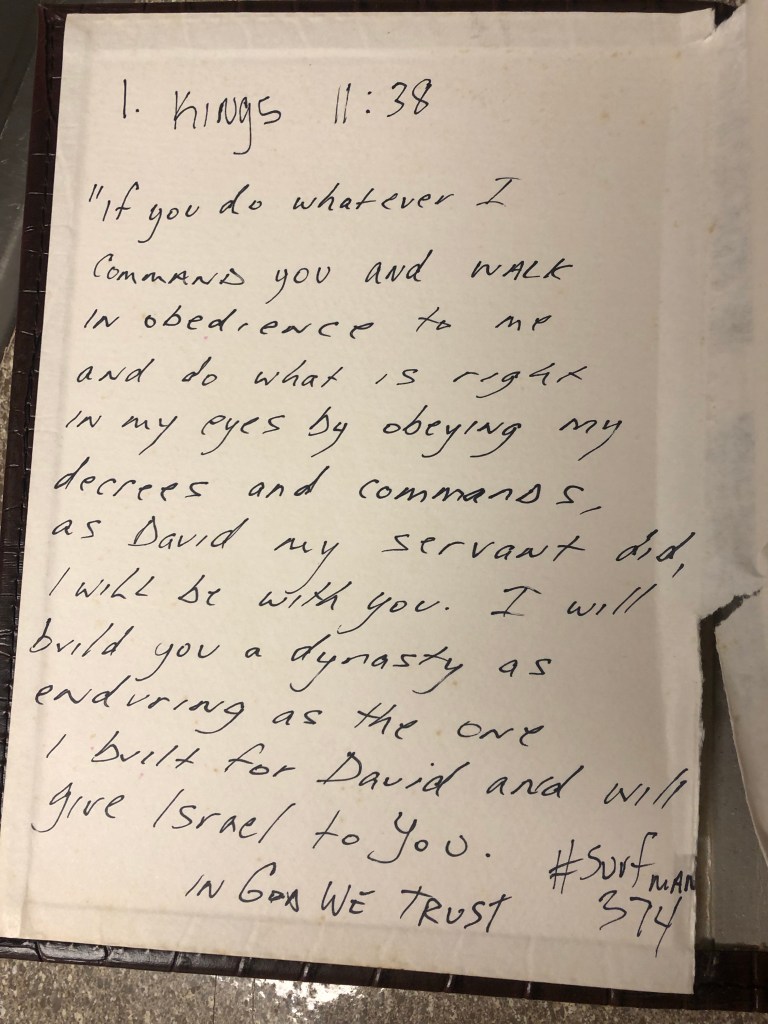 1. Kings 11:38
"If you do whatever I
COMMAND you and WALK
IN obedience to me
and do what is right
IN my eyes by obeying my
decrees and commands,
as David my servant did,
I will be with you. I will
build you a dynasty as
enduring as the one
I built for David and will
give Israel to You.
IN GOD WE TRUST
#SurfMAN
374